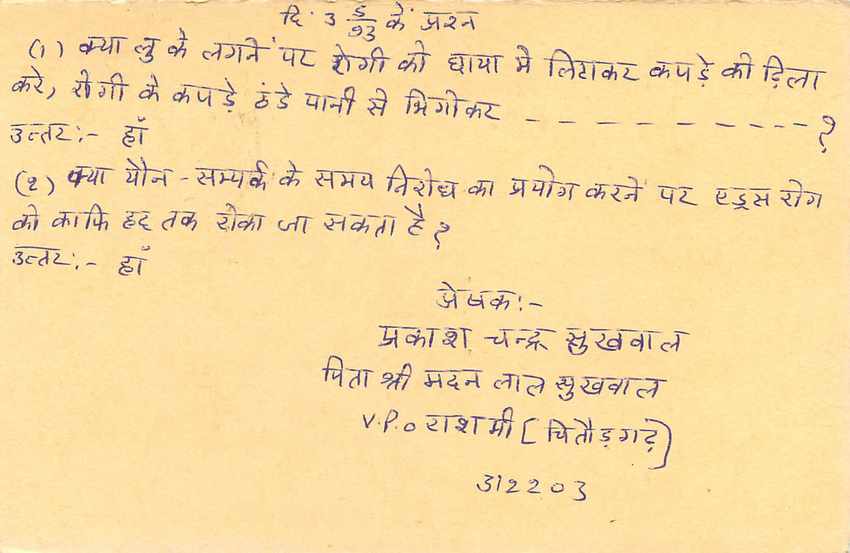 दि. 3 5/93 के प्रश्न
(1) क्या लु के लगने पर रोगी को छाया मे लिटाकर कपड़े की ढ़िला
करे, रोगी के कपड़े ठंडे पानी से भिगोकर - - - - - - - - - - ?
उत्तर :- हाँ
(2) क्या यौन - सम्पर्क के समय निरोध का प्रयोग करने पर एड्स रोग
को काफि हद तक रोका जा सकता है ?
उत्तर :- हाँ
प्रेषक :-
प्रकाश चन्द्र सुखवाल
पिता श्री मदन लाल सुखवाल
V.P.o राशमी [ चितौड़गढ़ ]
312203